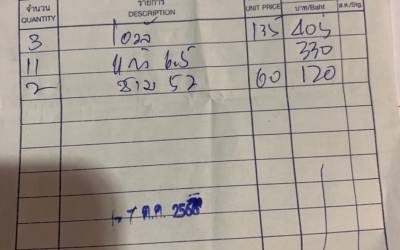 จำนวน รายการ บาท/Baht ส.ต./Stg.
QUANTITY DESCRIPTION UNIT PRICE
3 135 405
11 แก้ว 330
2 ชาม 52 60 120
7 ต.ค. 256